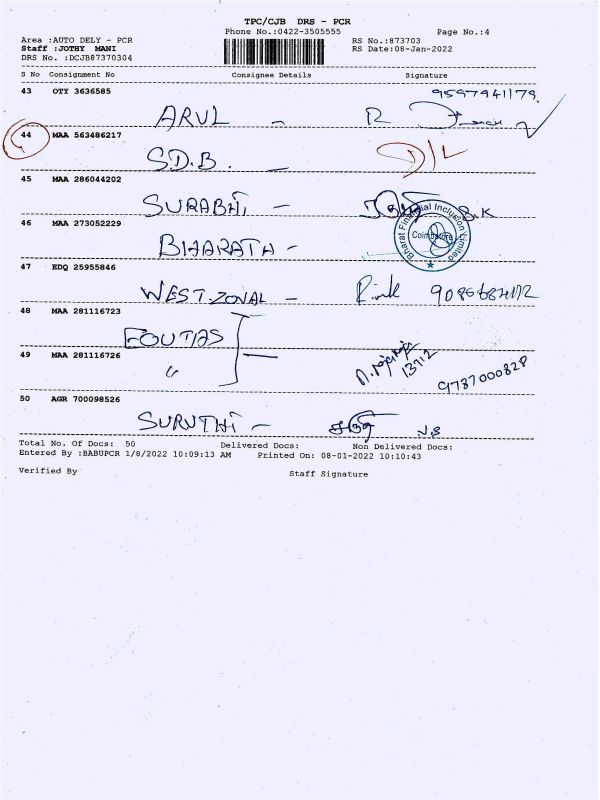 TPC/CJB DRS - PCR
Phone No.:0422-3505555
Page No.:4
Area :AUTO DELY - PCR
RS No.:873703
Staff :JOTHY MANI
RS Date:08-Jan-2022
DRS No. :DCJB87370304
S No Consignment No Consignee Details Signature
43 OTY 3636585
9597941179.
ARUL - R
44 MAA 563486217
S.D.B. - D/L
45 MAA 286044202
SURABHI - B.K
46 MAA 273052229
Bharat Financial Inclusion Limited
Coimbatore
BHARATH -
47 EDQ 25955846
WEST-ZONAL -
48 MAA 281116723
EQUTIAS
49 MAA 281116726
" 13712 9787000828
50 AGR 700098526
SURUTHI -
Total No. Of Docs: 50 Delivered Docs: Non Delivered Docs:
Entered By :BABUPCR 1/8/2022 10:09:13 AM Printed On: 08-01-2022 10:10:43
Verified By Staff Signature